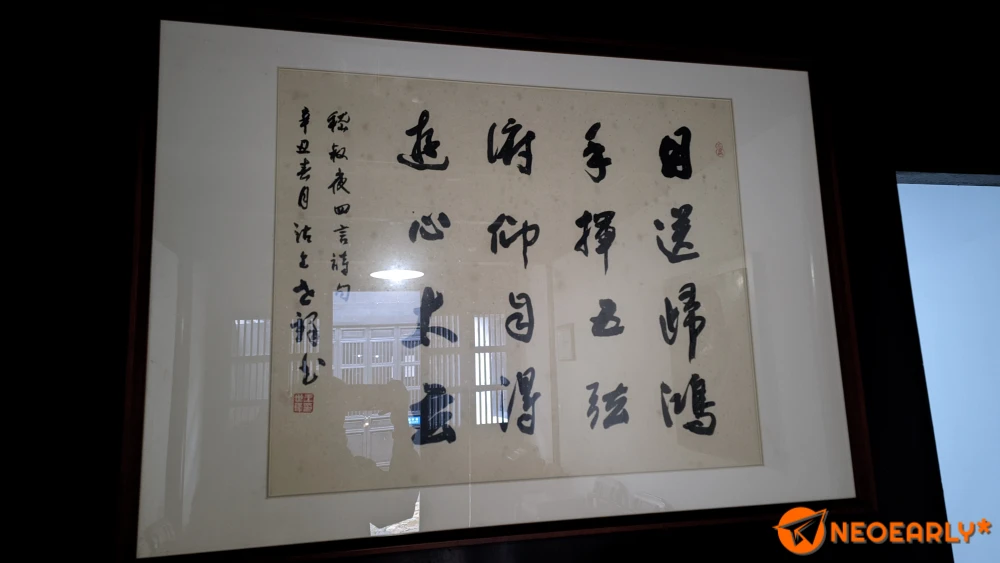 目送歸鴻
手揮五弦
俯仰自得
遊心太玄
嵇叔夜四言詩句
辛丑春月沽上
NEOEARLY*